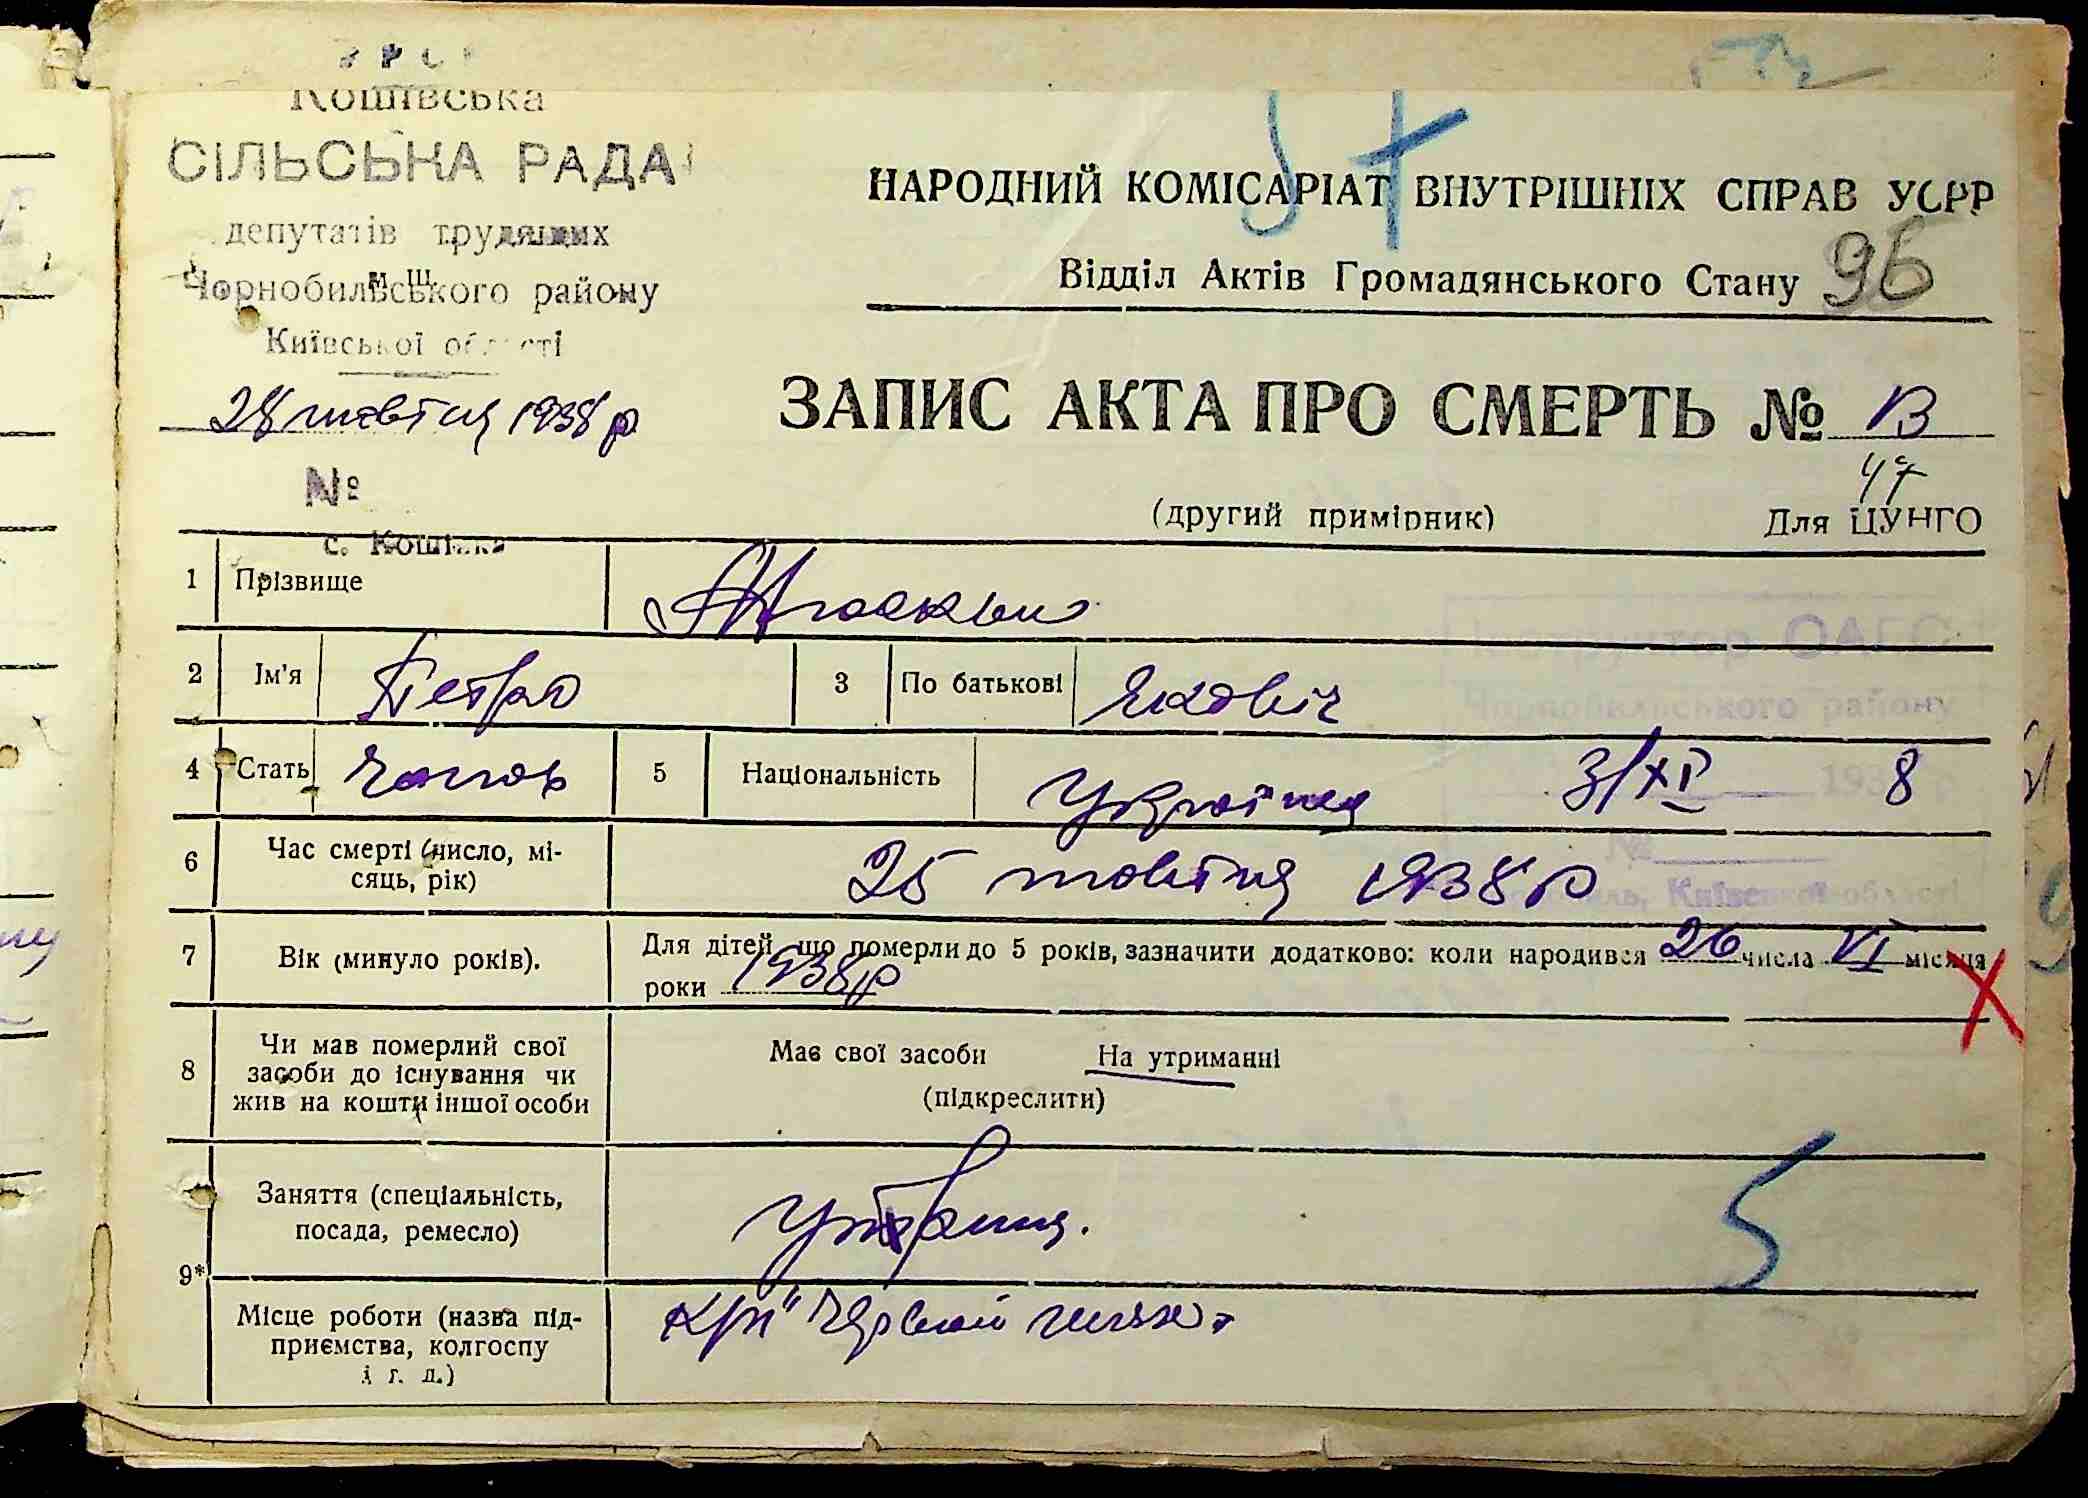 УРСР
Кошівська
СІЛЬСЬКА РАДА
депутатів трудящих
Чорнобильського району
Київської області
28 жовтня 1938 р
№
с. Кошівка
НАРОДНИЙ КОМІСАРІАТ ВНУТРІШНІХ СПРАВ УСРР
Відділ Актів Громадянського Стану 96
ЗАПИС АКТА ПРО СМЕРТЬ № 13
47
(другий примірник) Для ЦУНГО
1 Прізвище
2 Ім'я Петро 3 По батькові Якович
4 Стать чолов 5 Національність Українця 3/XI 8
6 Час смерті (число, мі-
сяць, рік) 25 жовтня 1938 р
7 Вік (минуло років). Для дітей, що померли до 5 років, зазначити додатково: коли народився 26 числа VI місяця
роки 1938 р
8 Чи мав померлий свої
засоби до існування чи
жив на кошти іншої особи
Має свої засоби На утриманні
(підкреслити)
9* Заняття (спеціальність,
посада, ремесло) 5
Місце роботи (назва під-
приємства, колгоспу
і т. д.)
Інструктор ОАГС
Чорнобильського району
193 р
№
Київської області